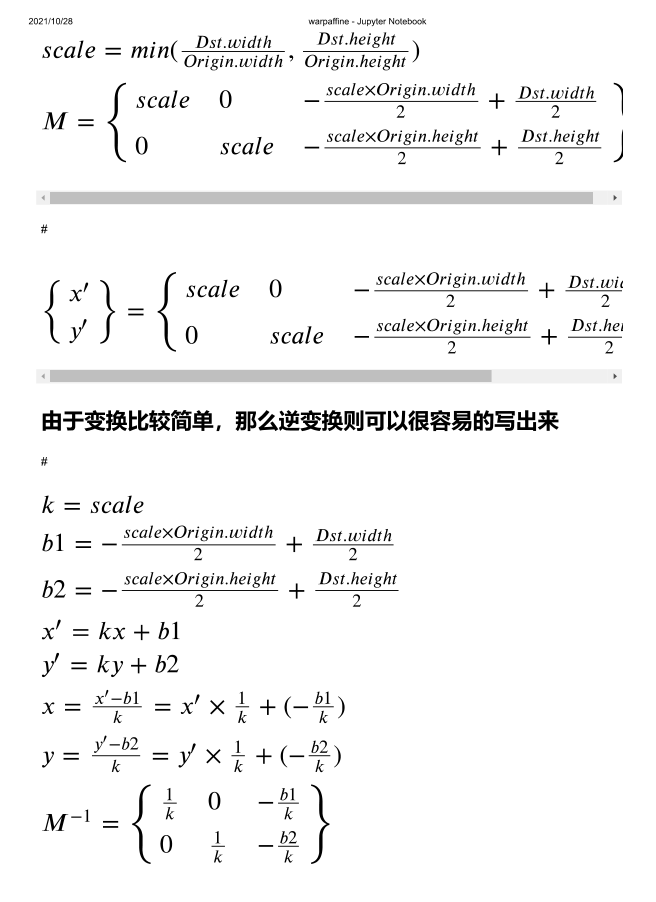 2021/10/28 warpaffine - Jupyter Notebook
scale = min(Dst.width/Origin.width, Dst.height/Origin.height)
M = { scale 0 −scale×Origin.width/2 + Dst.width/2
0 scale −scale×Origin.height/2 + Dst.height/2 }
#
{ x′ y′ } = { scale 0 −scale×Origin.width/2 + Dst.wid/2
0 scale −scale×Origin.height/2 + Dst.hei/2
由于变换比较简单，那么逆变换则可以很容易的写出来
#
k = scale
b1 = −scale×Origin.width/2 + Dst.width/2
b2 = −scale×Origin.height/2 + Dst.height/2
x′ = kx + b1
y′ = ky + b2
x = x′−b1/k = x′ × 1/k + (−b1/k)
y = y′−b2/k = y′ × 1/k + (−b2/k)
M−1 = { 1/k 0 −b1/k
0 1/k −b2/k }